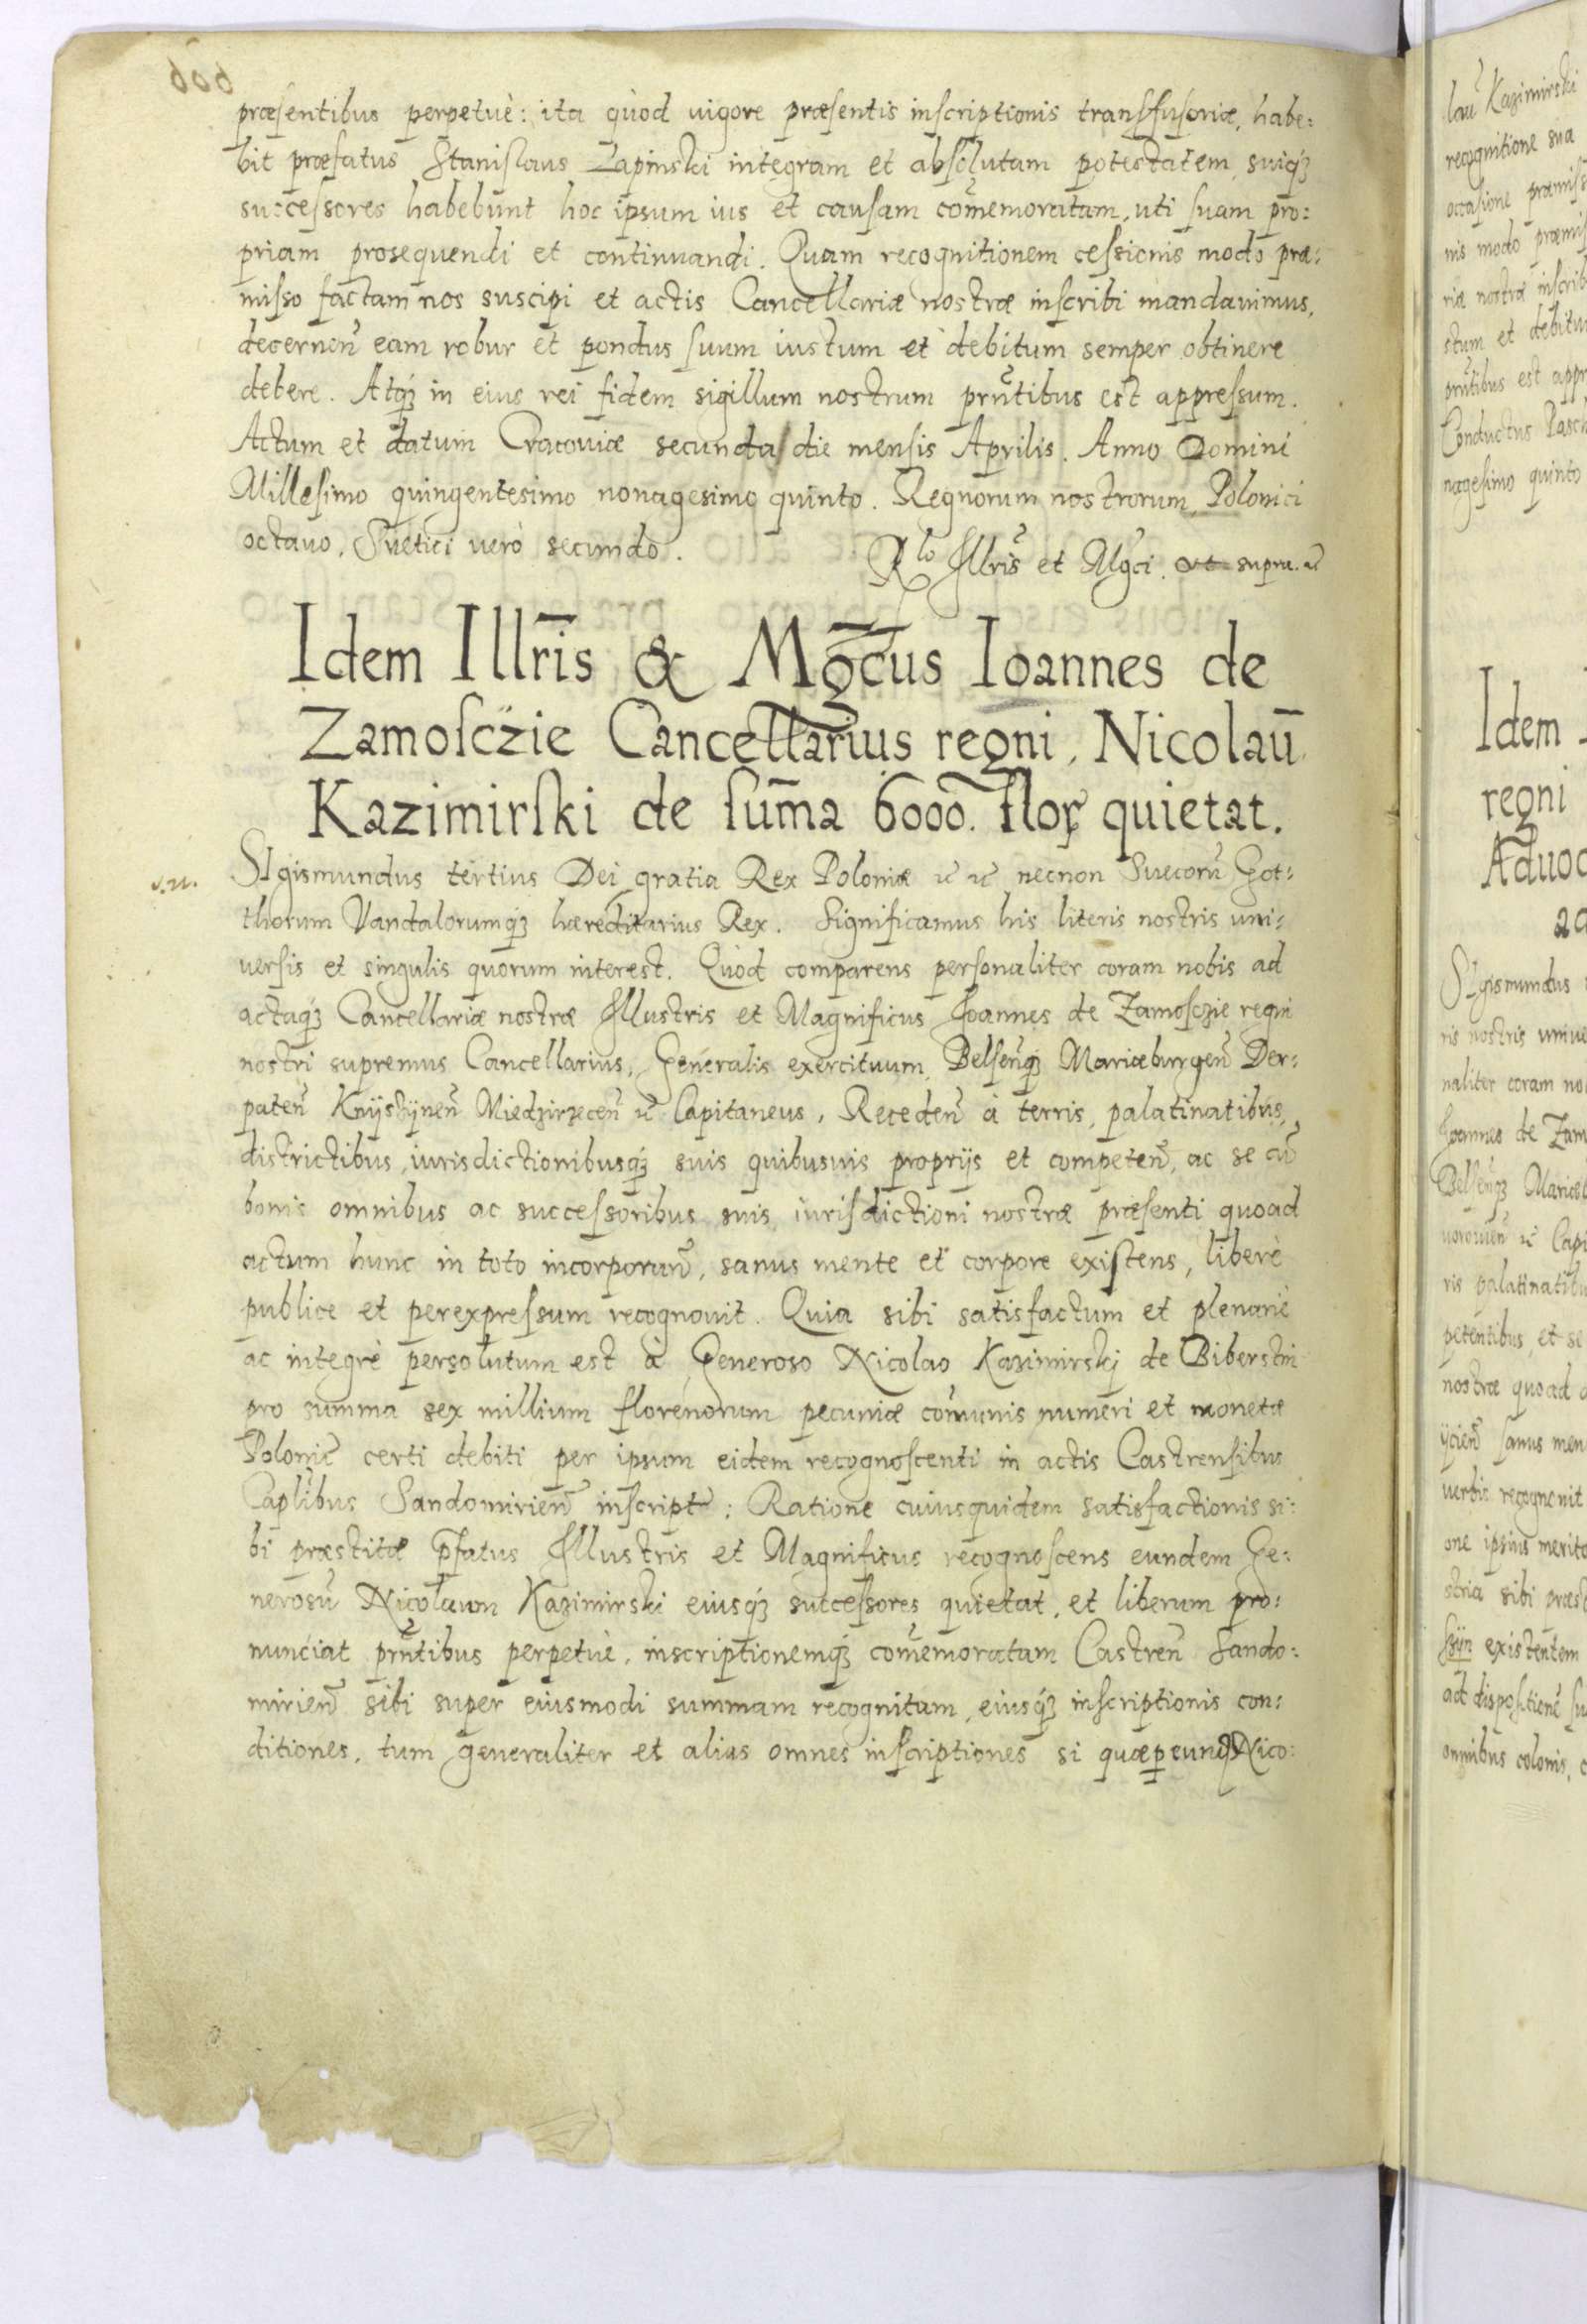 præsentibus perpetuè: ita quòd uigore præsentis inscriptionis transfusoriæ, habe:
bit præfatus Stanislaus Lapinski integram et absolutam potestatem, suiq́ꝫ
successores habebunt hoc ipsum ius et causam com̃emoratam, uti suam pro:
priam prosequendi et continuandi. Quam recognitionem cessionis modo præ:
misso factam nos suscipi et actis Cancellariæ nostræ inscribi mandauimus,
decernen̄ eam robur et pondus suum iustum et debitum semper obtinere
debere. Atq́ꝫ in eius rei fidem sigillum nostrum prn̄tibus est appressum.
Actum et datum Cracouiæ secunda die mensis Aprilis. Anno Domini
Millesimo quingentesimo nonagesimo quinto. Regnorum nostrorum, Polonici
octauo, Suetici uerò secundo.
Rlo Illris̄ et Mgci. ut supra. ꝛc̃
Idem Illrīs & Mgc̄us Ioannes de
Zamosczie Cancellarius regni, Nicolaū
Kazimirski de sum̄a 6000. floꝝ quietat.
SIgismundus tertius Dei gratia Rex Poloniæ ꝛc̃ ꝛc̃ necnon Suecorū Got:
thorum Vandalorumq́ꝫ hæreditarius Rex. Significamus his literis nostris uni:
uersis et singulis quorum interest. Quòd comparens personaliter coram nobis ad
actaq́ꝫ Cancellariæ nostræ Illustris et Magnificus Ioannes de Zamosczie regni
nostri supremus Cancellarius, Generalis exercituum, Belsen̄q́ꝫ Mariæburgen̄ Der:
paten̄ Knÿschÿnen̄ Miedzirzecen̄ ꝛc̃ Capitaneus, Receden̄ à terris, palatinatibus,
districtibus, iurisdictionibusq́ꝫ suis quibusuis proprijs et competen̄, ac se cū
bonis omnibus ac successoribus suis iurisdictioni nostræ præsenti quoad
actum hunc in toto incorporan̄, sanus mente et corpore existens, liberè
publice et perexpressum recognouit. Quia sibi satisfactum et plenariè
ac integrè persolutum est à Generoso Nicolao Kazimirskj de Biberstin
pro summa sex millium florenorum pecuniæ com̄unis numeri et monetæ
Polonic̄ certi debiti per ipsum eidem recognoscenti in actis Castrensibus
Caplibus Sandomirien̄ inscript̄: Ratione cuiusquidem satisfactionis si:
bi præstitæ p̄fatus Illustris et Magnificus recognoscens eundem Ge:
nerosū Nicolaum Kazimirski eiusq́ꝫ successores quietat, et liberum pro:
nunciat prn̄tibus perpetuè, inscriptionemq́ꝫ com̄emoratam Castren̄ Sando:
mirien̄ sibi super eiusmodi summam recognitam, eiusq́ꝫ inscriptionis con:
ditiones, tum generaliter et alias omnes inscriptiones si quæ per eund Nico: